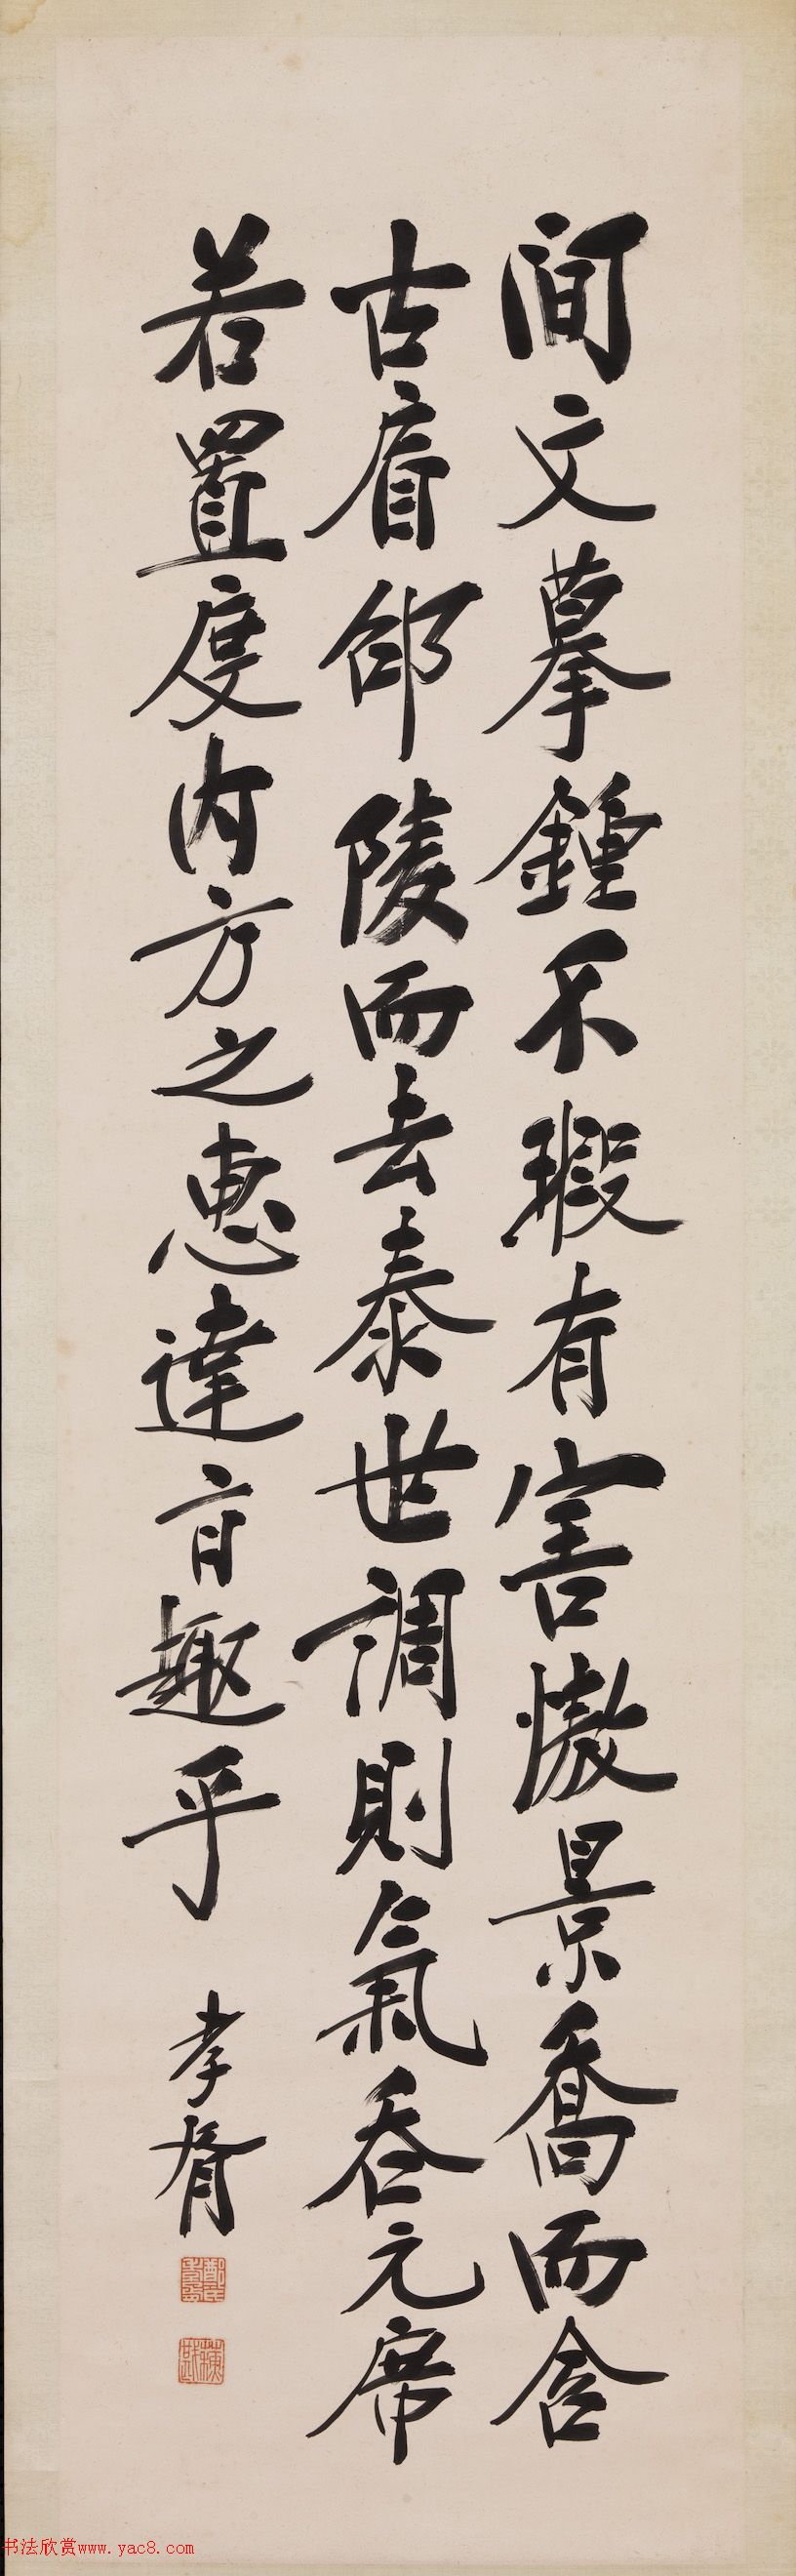 简文摹鍾不瑕有害傲景喬而含
古眉邰陵而去泰世調則氣吞元席
若置度内方之惠達盲趣乎
孝胥
书法欣赏www.yac8.com